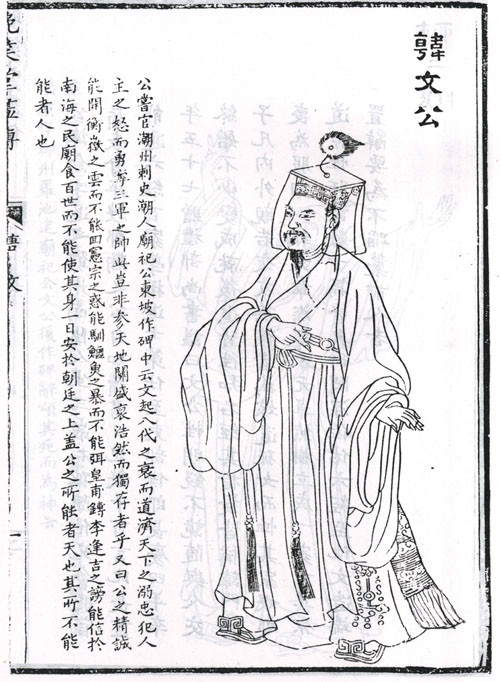 韓文公
公嘗官潮州刺史潮人廟祀公東坡作碑中云文起八代之衰而道濟天下之溺忠犯人
主之怒而勇奪三軍之帥此豈非參天地關盛衰浩然而獨存者乎又曰公之精誠
能開衡嶽之雲而不能回憲宗之惑能馴鱷魚之暴而不能弭皇甫鎛李逢吉之謗能信於
南海之民廟食百世而不能使其身一日安於朝廷之上蓋公之所能者天也其所不能
能者人也